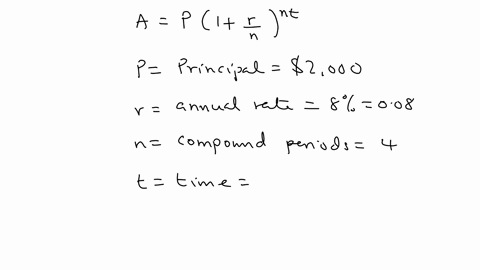 A = P (1 + r/n)^nt
P = Principal = $2,000
r = annual rate = 8% = 0.08
n = compound periods = 4
t = time =